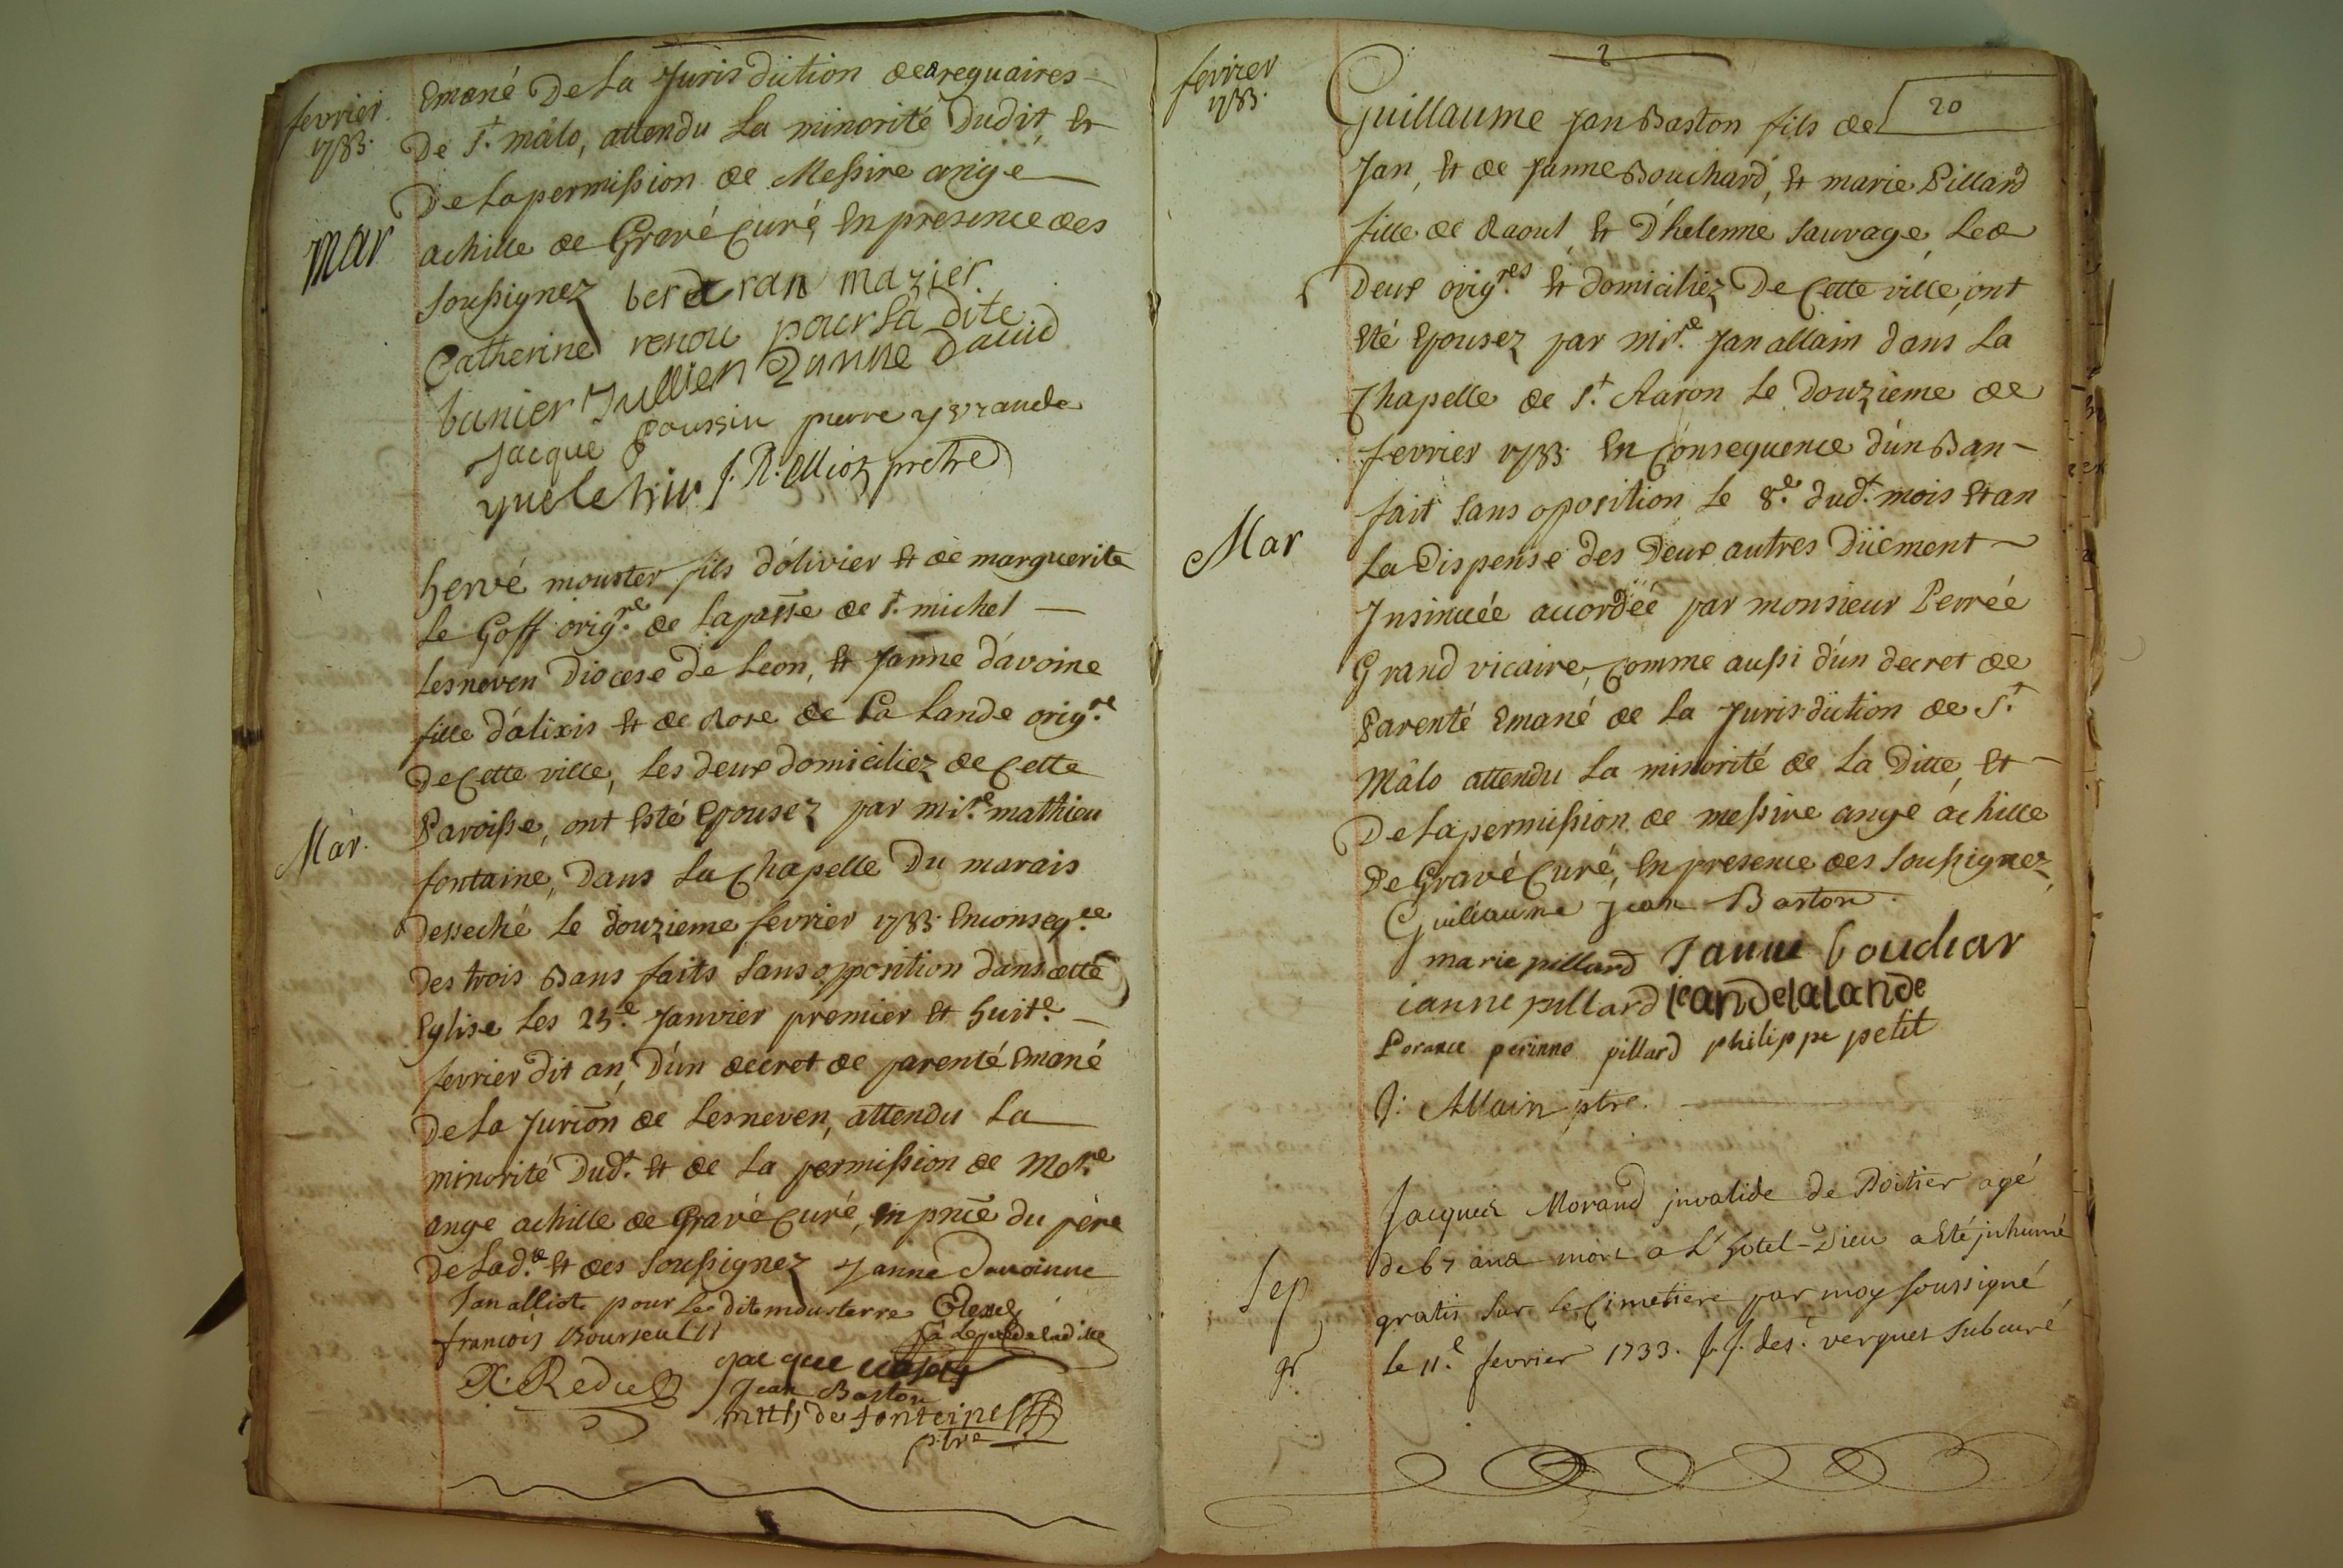 fevrier
1733.
Emané De La Jurisdiction des reguaires
De St. mâlo, attendu La minorité Dudit, Et
De Lapermission de Messire ange
Mar
achille de Gravé Curé, En presence des
soussignez berdran mazier
Catherine renou pour la dite
banier Jullien Janne Dauid
Jacque poussin pierre
J. R. Elliot pretre
hervé mouster fils d'olivier Et de marguerite
Le Goff orig.re de La passe de St. michel
Lesneven Diocese De Leon, Et Janne davoine
fille d'alixis Et de Rose de La Lande orig.re
De Cette ville, Les deux domiciliez de Cette
Mar.
Paroisse, ont Esté Epousez par mire. mathieu
fontaine, Dans La Chapelle Du marais
desseché Le douzieme fevrier 1733 En conseq.ce
des trois Bans faits Sans opposition dans cette
Eglise Les 25.e Janvier premier Et huit.e
fevrier dit an, D'un decret de parenté Emané
De La Jurion de Lesneven, attendu La
minorité Dud.t Et de La permission de Mesre
ange achille de Gravé Curé, En pnce du père
De Lad.te Et des Soussignez Janne Davoinne
Jan alliot pour Le dit mousterre
françois Bourseul
Jean Baston
math de fonteine
ptre
fevrier
1733.
20
Guillaume Jan Baston fils de
Jan, Et de Janne Bouchard, Et marie Pillard
fille de Raoul, Et D'helenne Sauvage Les
Deux orig.res Et domiciliez De Cette ville, ont
Eté Epousez par mire. Jan allain dans La
Chapelle de St. Aaron Le Douzieme de
fevrier 1733. En Consequence d'un Ban
fait Sans oposition Le 8.e dud.t mois Et an
Mar
La Dispense des Deux autres Düement
Insinuée accordéé par monsieur Perrée
Grand vicaire, Comme aussi d'un decret de
Parenté Emané de La Jurisdiction de St.
Mâlo attendu La minorité de La Ditte, Et
De Lapermission de messire ange achille
De Gravé Curé, En presence des Soussignez,
Guillaume Jean Baston.
marie pillard Janne bouchar
ianne pillard ieandelalande
perinne pillard philippe petit
J: Allain ptre.
Jacques Morand invalide de Poitier agé
de 67 ans mort a L'hotel-Dieu a Eté inhumé
Sep
gratis Sur Le Cimetiere par moy Soussigné
gr.
Le 11.e fevrier 1733. J.J. des vergues Subcuré